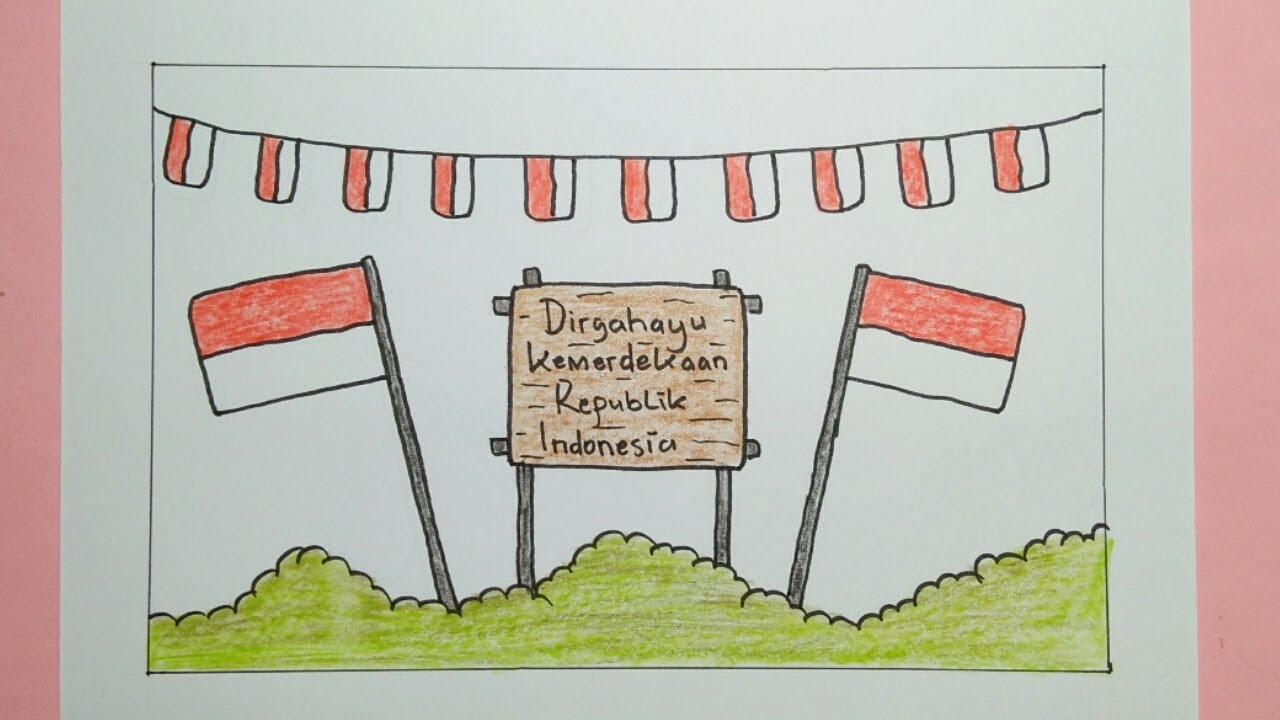 Dirgahayu
Kemerdekaan
Republik
Indonesia